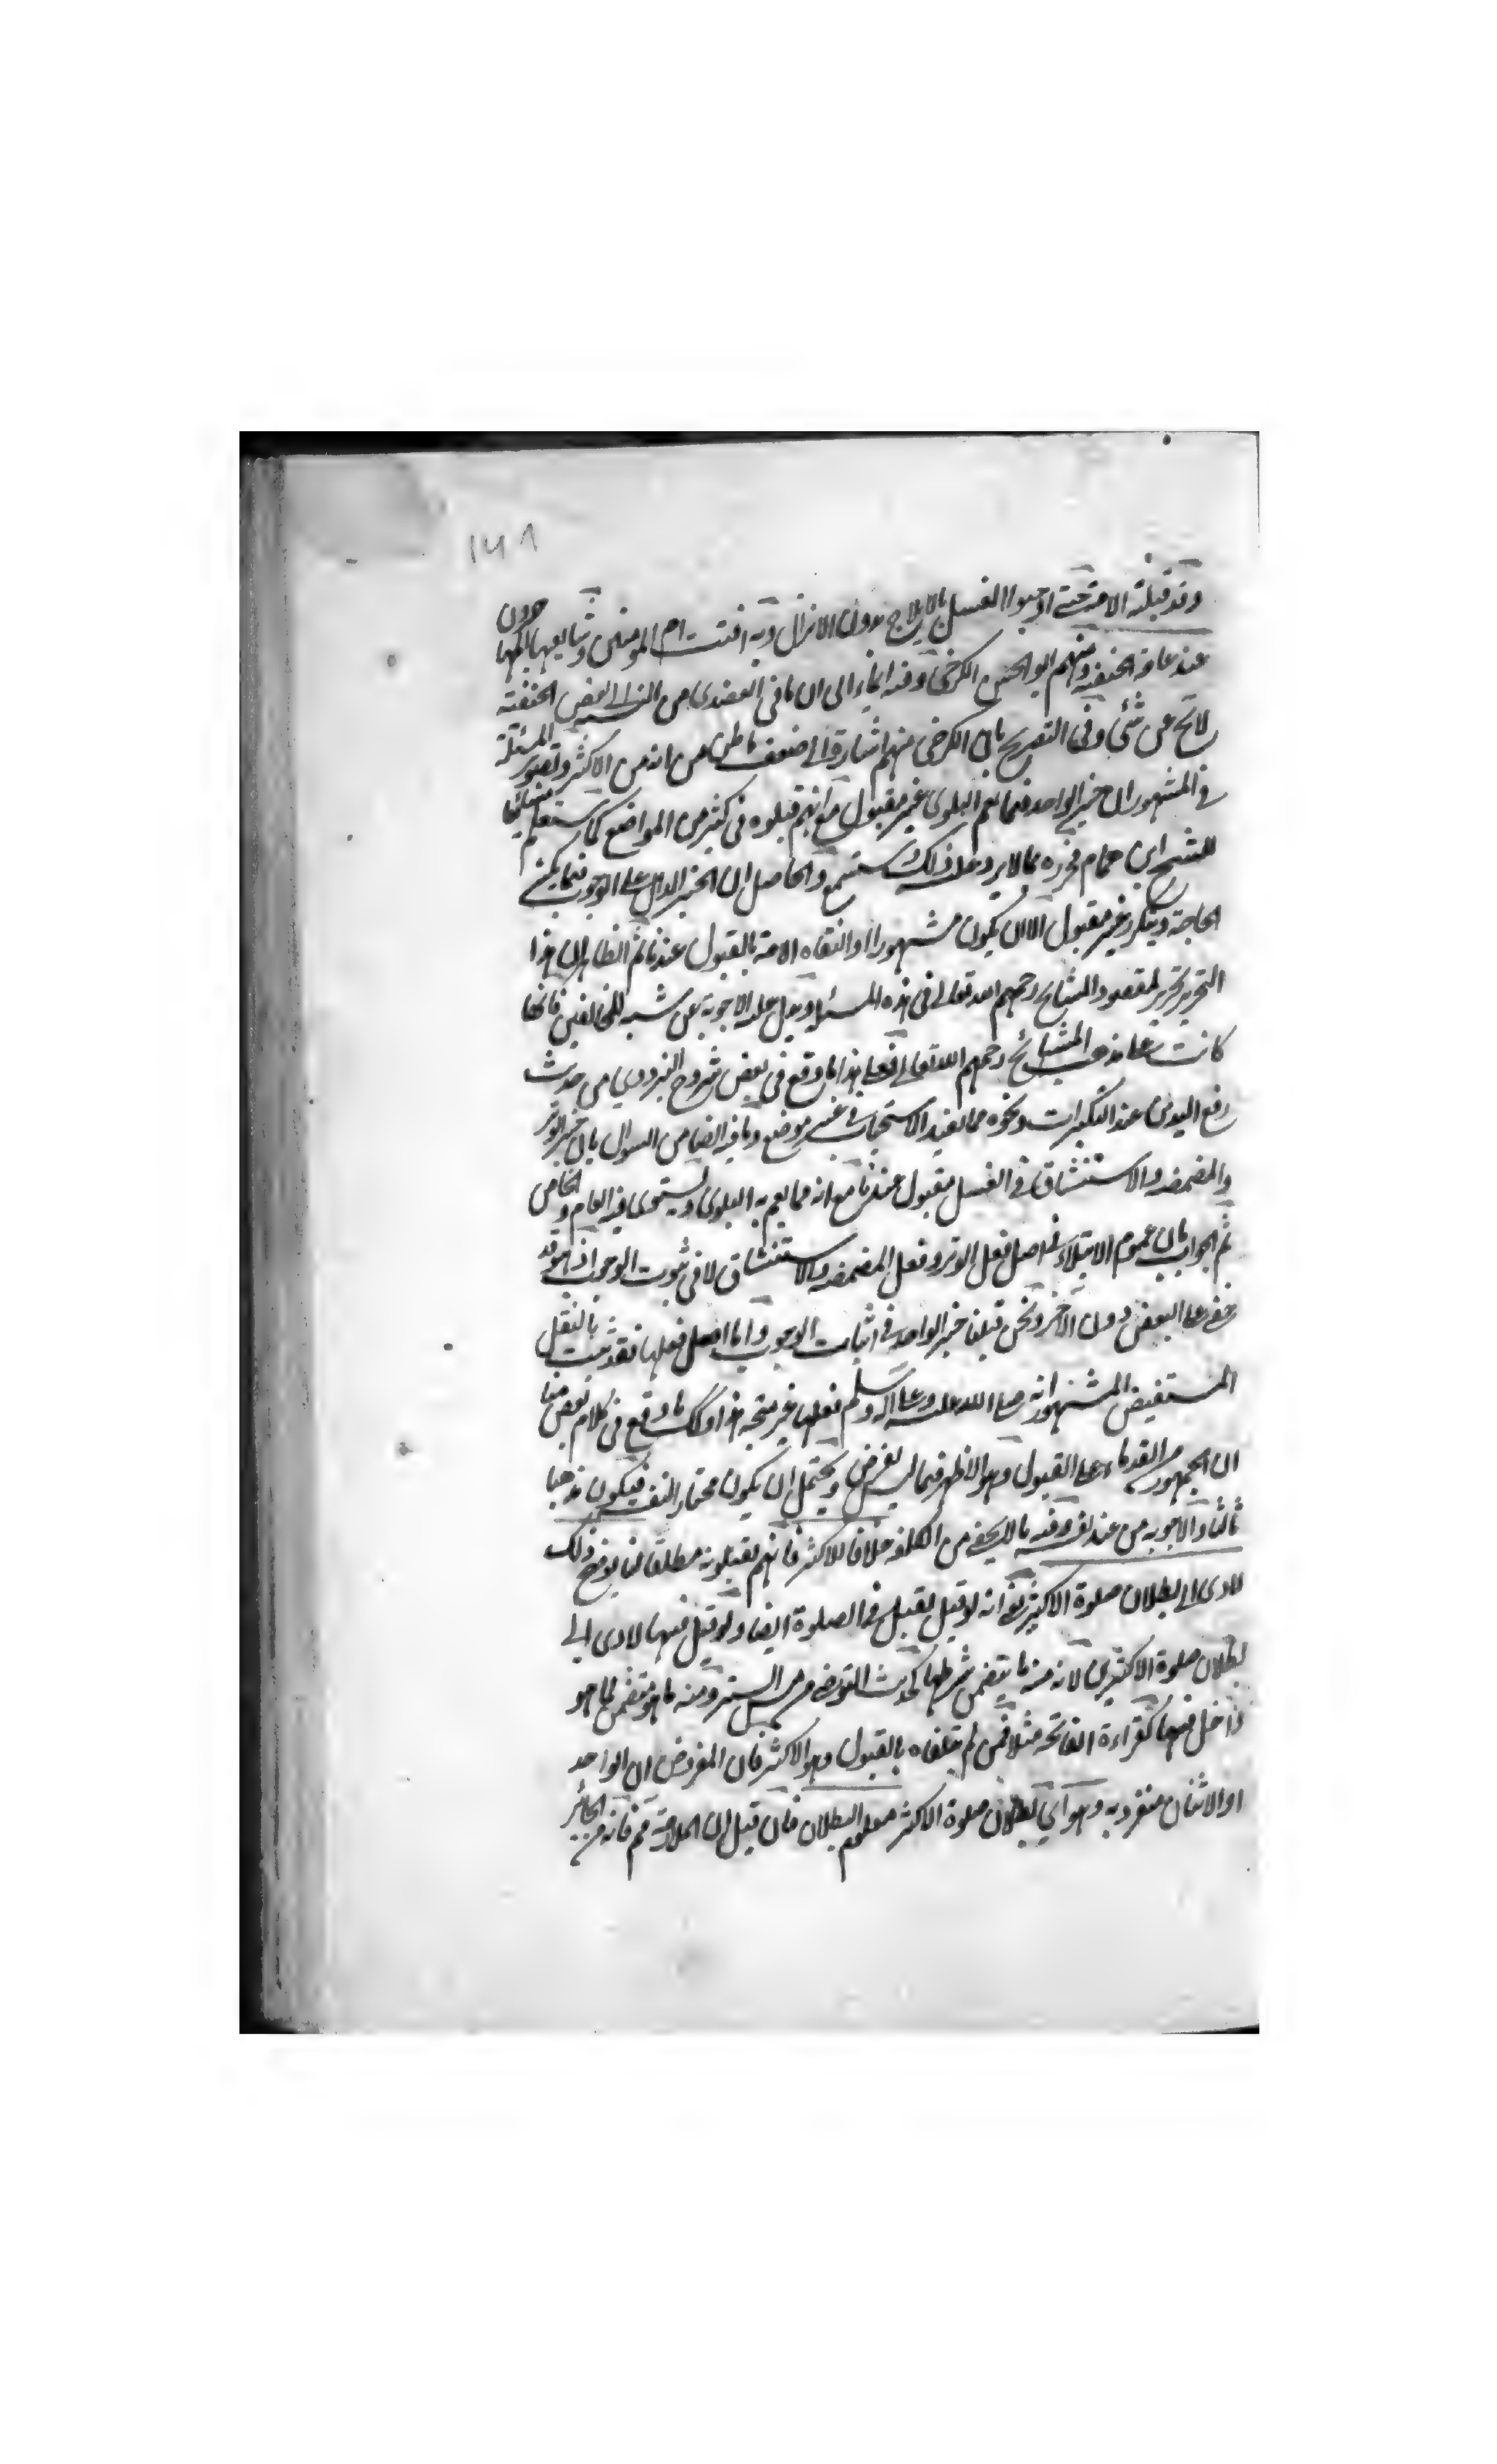 ١٤٨
وقد قبلته الامة حتى اوجبوا الغسل بالايلاج بدون الانزال وبه افتت ام المومنين وشايعها الجمهور
عند عامة الحنفية ومنهم ابو الحسن الكرخي وفيه ايماء الى ان ما في العضدي من النسبة الى بعض الحنفية
لا يخ عن شئ وفي التصريح بان الكرخي منهم اشارة الى ضعف ما ظن من انه من الاكثر وتصوير المسئلة
في المشهور ان خبر الواحد فيما يعم البلوى غير مقبول مع انهم قبلوه في كثير من المواضع كما ستعلم
للشيخ ابن همام فحرره مما لا يرد عليه ذلك وستسمع والحاصل ان الخبر الدال على الوجوب فيما يكثر
الحاجة ويتكرر غير مقبول الا ان يكون مشهورا او التقاه الامة بالقبول عندنا ثم الظاهر ان هذا
التحرير تحرير لمقصود المشايخ رحمهم الله تعالى في هذه المسئلة ويدل عليه الاجوبة عن شبه المخالفين فانها
كانت على مذهب المشائخ رحمهم الله تعالى فعلى هذا ما وقع في بعض شروح البزدوي من حديث
رفع اليدين عند التكبيرات ونحوه مما يفيد الاستحباب في غير موضع وما فيه ايضا من السوال بان خبر الوتر
والمضمضة والاستنشاق في الغسل مقبول عندنا مع انه مما يعم به البلوى ويستوي فيه العام والخاص
ثم الجواب بان عموم الابتلاء في اصل فعل الوتر وفعل المضمضة والاستنشاق لا في ثبوت الوجوب اذ هو قد
خفي على البعض دون الاخر ونحن قبلنا خبر الواحد في اثبات الوجوب واما اصل فعلها فقد ثبت بالنقل
المستفيض المشهور انه صلى الله عليه وعلى اله وسلم فعلها غير متجه هذا وكك ما وقع في كلام بعض منا
ان الجمهور من القدماء على القبول وهو الاظهر فيما ليس بفرض ويحتمل ان يكون مختار النفسه فيكون مذهبا
ثالثا والاجوبه من عند نفسه وفيه ما لا يخفى من الكلفة خلافا للاكثر فانهم يقبلونه مطلقا لنا يوضح ذلك
لادى الى بطلان صلوة الاكثر يعني انه لو قبل لقبل في الصلوة ايضا ولو قبل فيها لادى الى
بطلان صلوة الاكثرين لانه منه ما يتضمن شرطها كحديث التوضي من مس الستر ومنه ما هو متضمن لما هو
داخل فيها كقراءة الفاتحة مثلا فمن لم يتلقاه بالقبول وهو الاكثر فان المفروض ان الواحد
او الاثنان منفرد به وهو اي بطلان صلوة الاكثر معلوم البطلان فان قيل ان الملازمة مم فانه من الجائز